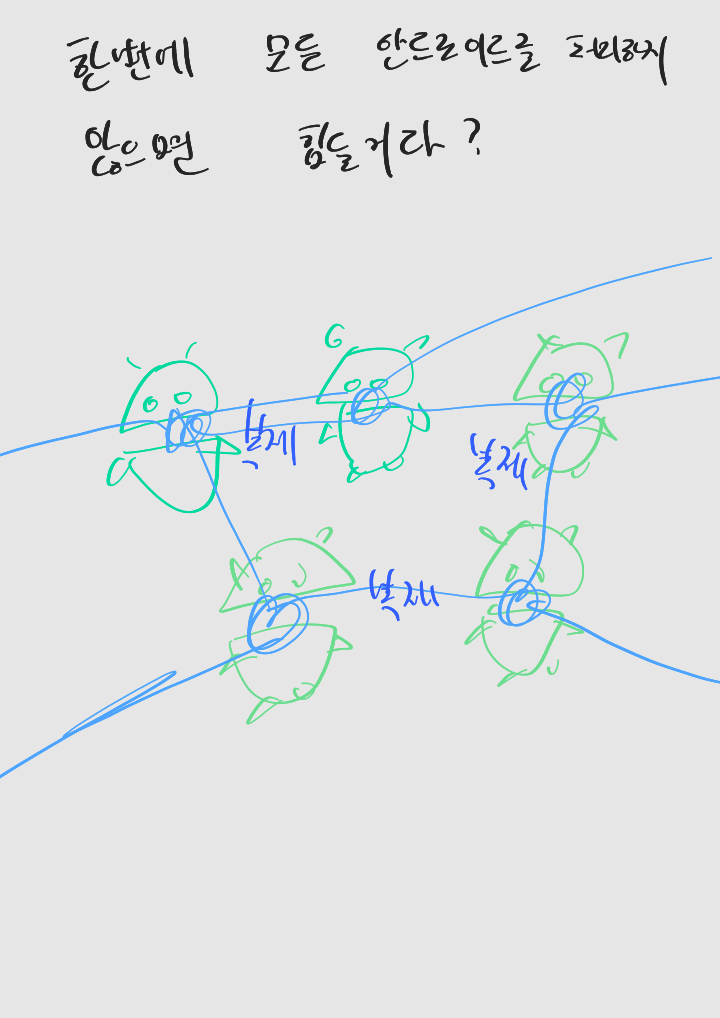 한번에 모든 안드로이드를 파괴하지
않으면 힘들거다?
복제
복제
복제